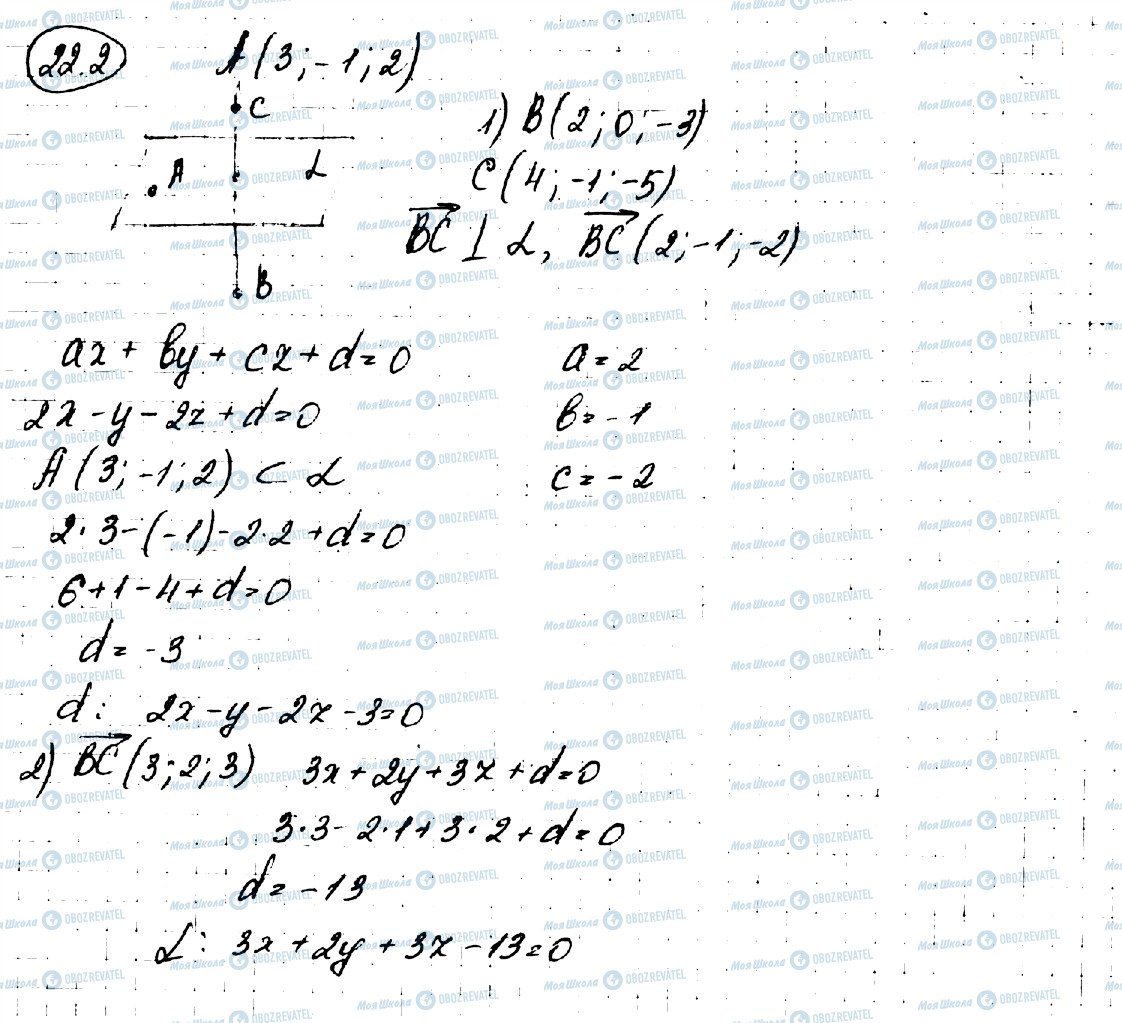 22.2
A (3; -1; 2)
C
A
α
B
1) B (2; 0; -3)
C (4; -1; -5)
BC ⊥ α, BC (2; -1; -2)
ax + by + cz + d = 0
a = 2
2x - y - 2z + d = 0
b = -1
A (3; -1; 2) ⊂ α
c = -2
2·3 - (-1) - 2·2 + d = 0
6 + 1 - 4 + d = 0
d = -3
d: 2x - y - 2z - 3 = 0
2) BC (3; 2; 3) 3x + 2y + 3z + d = 0
3·3 - 2·1 + 3·2 + d = 0
d = -13
α: 3x + 2y + 3z - 13 = 0
Моя Школа OBOZREVATEL